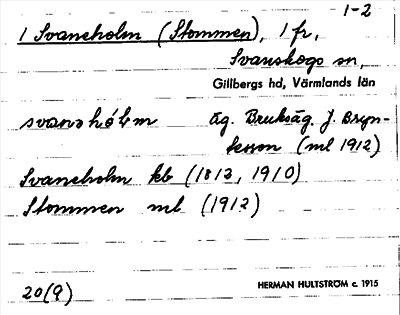 1-2
1 Svaneholm (Stommen), 1 fr,
Svanskogs sn,
Gillbergs hd, Värmlands län
svanəhólm äg. Bruksäg. J. Bryn-
tesson (ml 1912)
Svaneholm kb (1813, 1910)
Stommen ml (1912)
20(9)
HERMAN HULTSTRÖM c. 1915